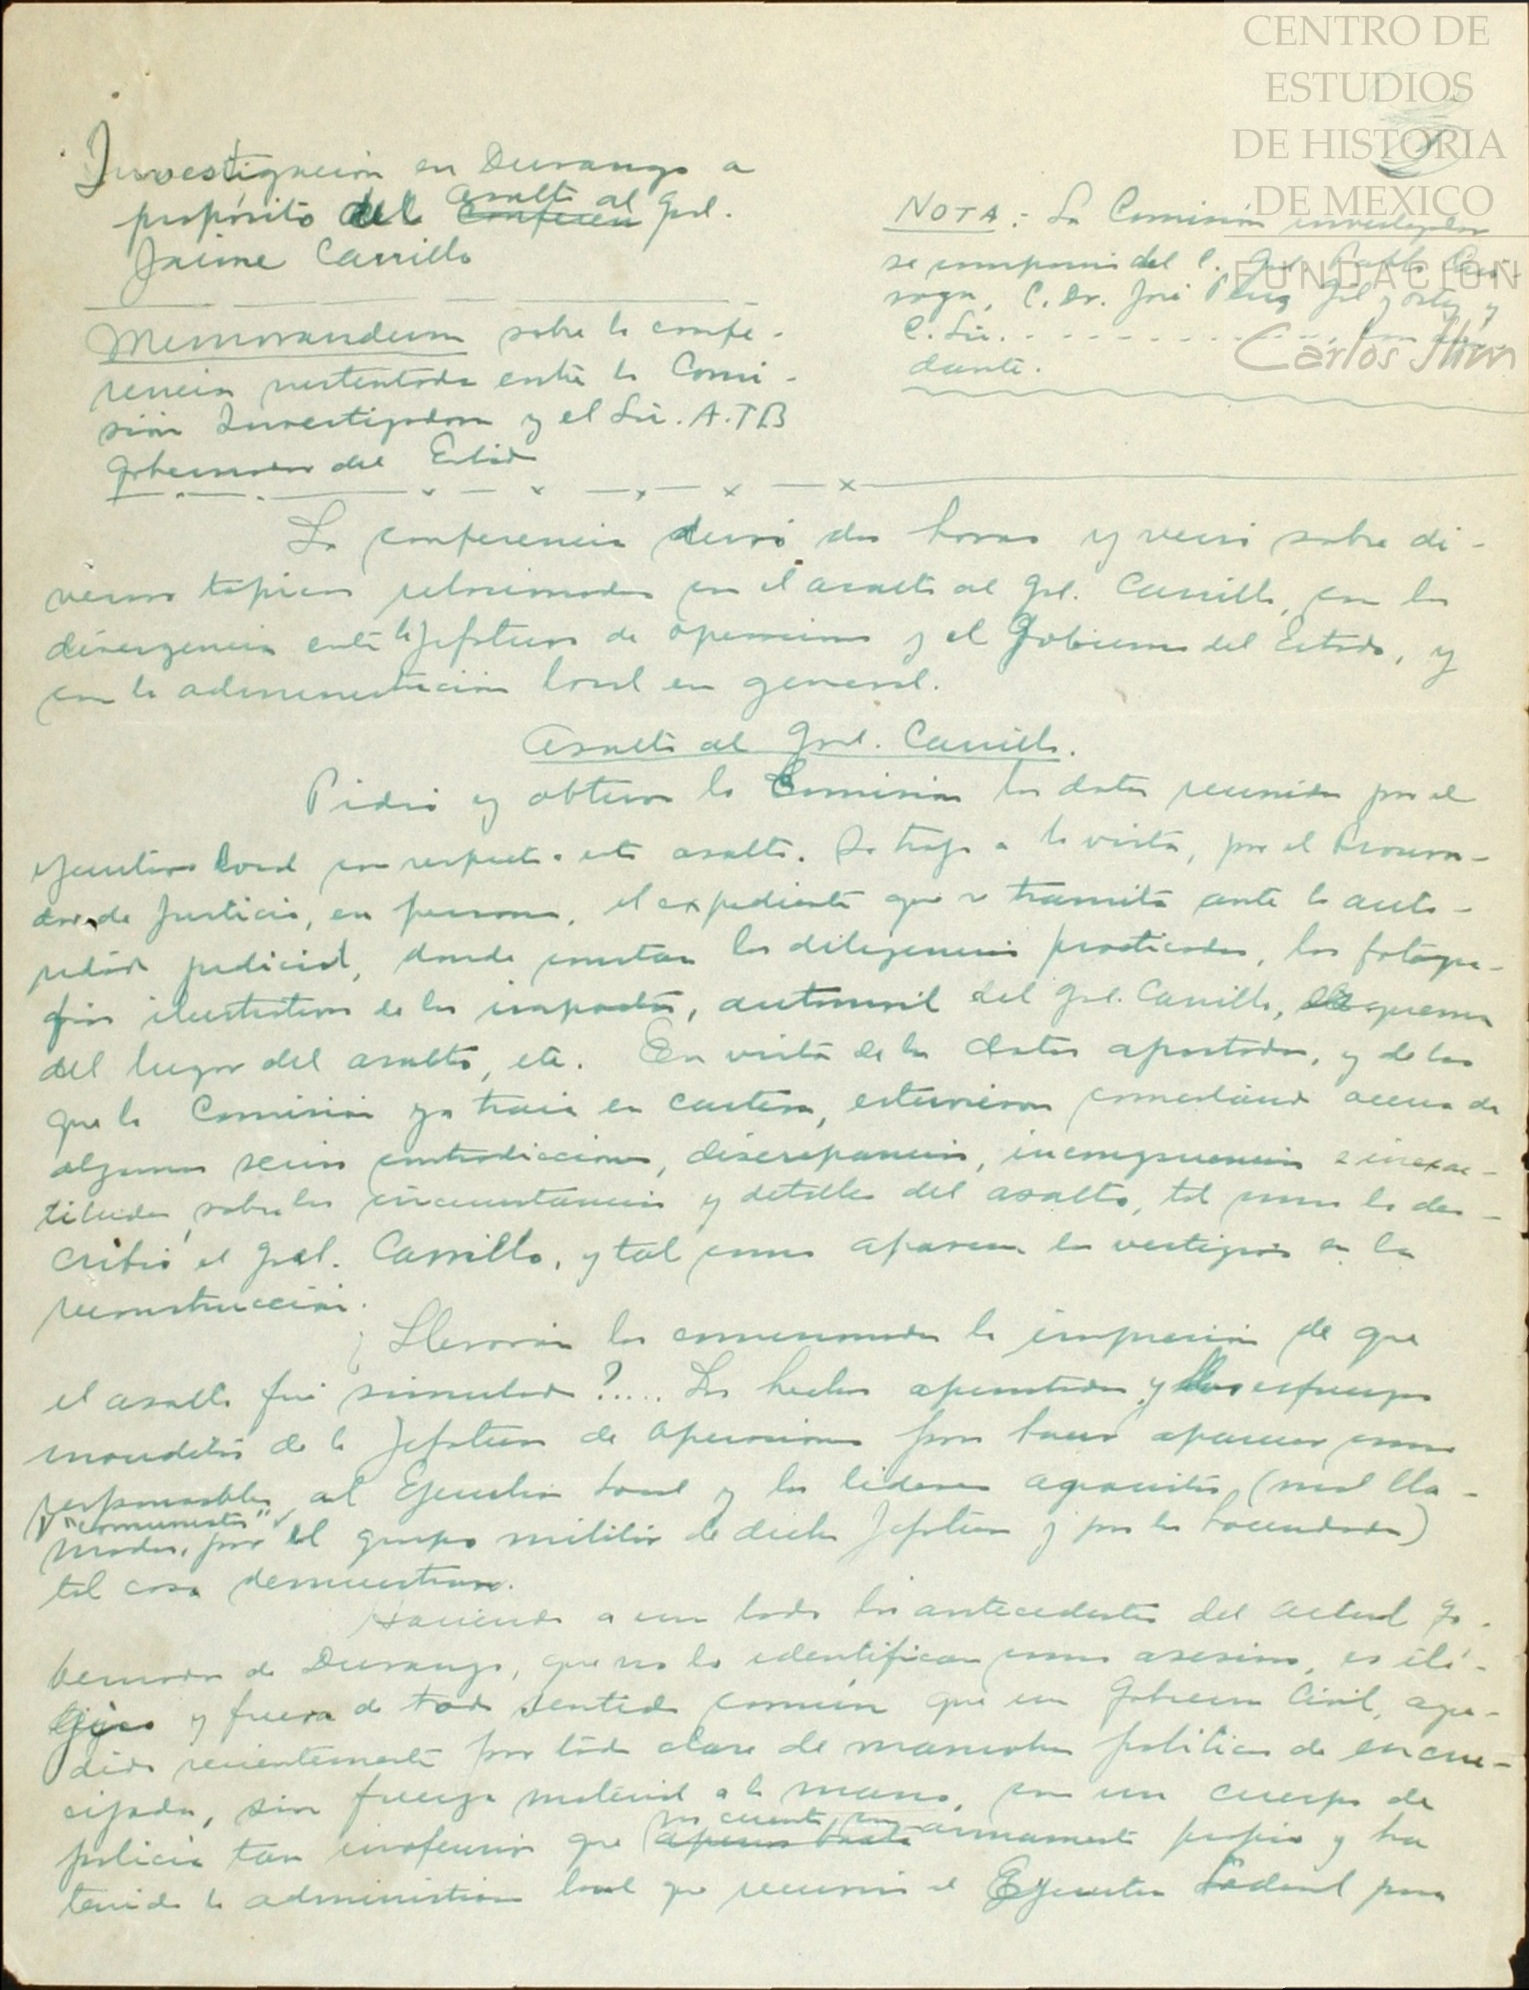 CENTRO DE
ESTUDIOS
DE HISTORIA
DE MEXICO
FUNDACIÓN
Carlos Slim
Investigación en Durango a
propósito del asalto al Gral.
Jaime Carrillo
NOTA: La Comisión investigadora
se componía del C. Gral. Pablo
C. Dr. José Gil y Ortiz y
C. Lic. . . . . . . . . . . . .
dante.
Memorandum sobre la confe-
rencia sustentada entre la Comi-
sión Investigadora y el Lic. A.TB
Gobernador del Estado
La conferencia duró dos horas y versó sobre di-
versos tópicos relacionados con el asalto al Gral. Carrillo, con la
divergencia entre la Jefatura de Operaciones y el Gobierno del Estado, y
con la administración local en general.
Asalto al Gral. Carrillo.
Pidió y obtuvo la Comisión los datos reunidos por el
Ejecutivo Local con respecto a este asalto. Se trajo a la vista, por el Procura-
dor de Justicia, en persona, el expediente que se tramita ante la auto-
ridad judicial, donde constan las diligencias practicadas, las fotogra-
fías ilustrativas de los impactos, automóvil del Gral. Carrillo, esquema
del lugar del asalto, etc. En vista de los datos aportados, y de los
que la Comisión ya traía en cartera, estuvieron comentando acerca de
algunas serias contradicciones, discrepancias, incongruencias e inexac-
titudes, sobre las circunstancias y detalles del asalto, tal como lo des-
cribió el Gral. Carrillo, y tal como aparecen los vestigios en la
reconstrucción.
¿Llevarán los comisionados la impresión de que
el asalto fué simulado?..... Los hechos apuntados y los esfuerzos
inauditos de la Jefatura de Operaciones para hacer aparecer como
responsables al Ejecutivo Local y los líderes agraristas (mal lla-
mados "comunistas" por el grupo militar de dicha Jefatura y por los hacendados)
tal cosa demuestran.
Haciendo a un lado los antecedentes del actual Go-
bernador de Durango, que no lo identifican como asesino, es iló-
gico y fuera de todo sentido común que un Gobierno Civil, agre-
dido recientemente por toda clase de maniobras políticas de encru-
cijada, sin fuerza material a la mano, con un cuerpo de
policía tan inofensivo que no cuenta con armamento propio y ha
tenido la administración local que recurrir al Ejecutivo Federal para